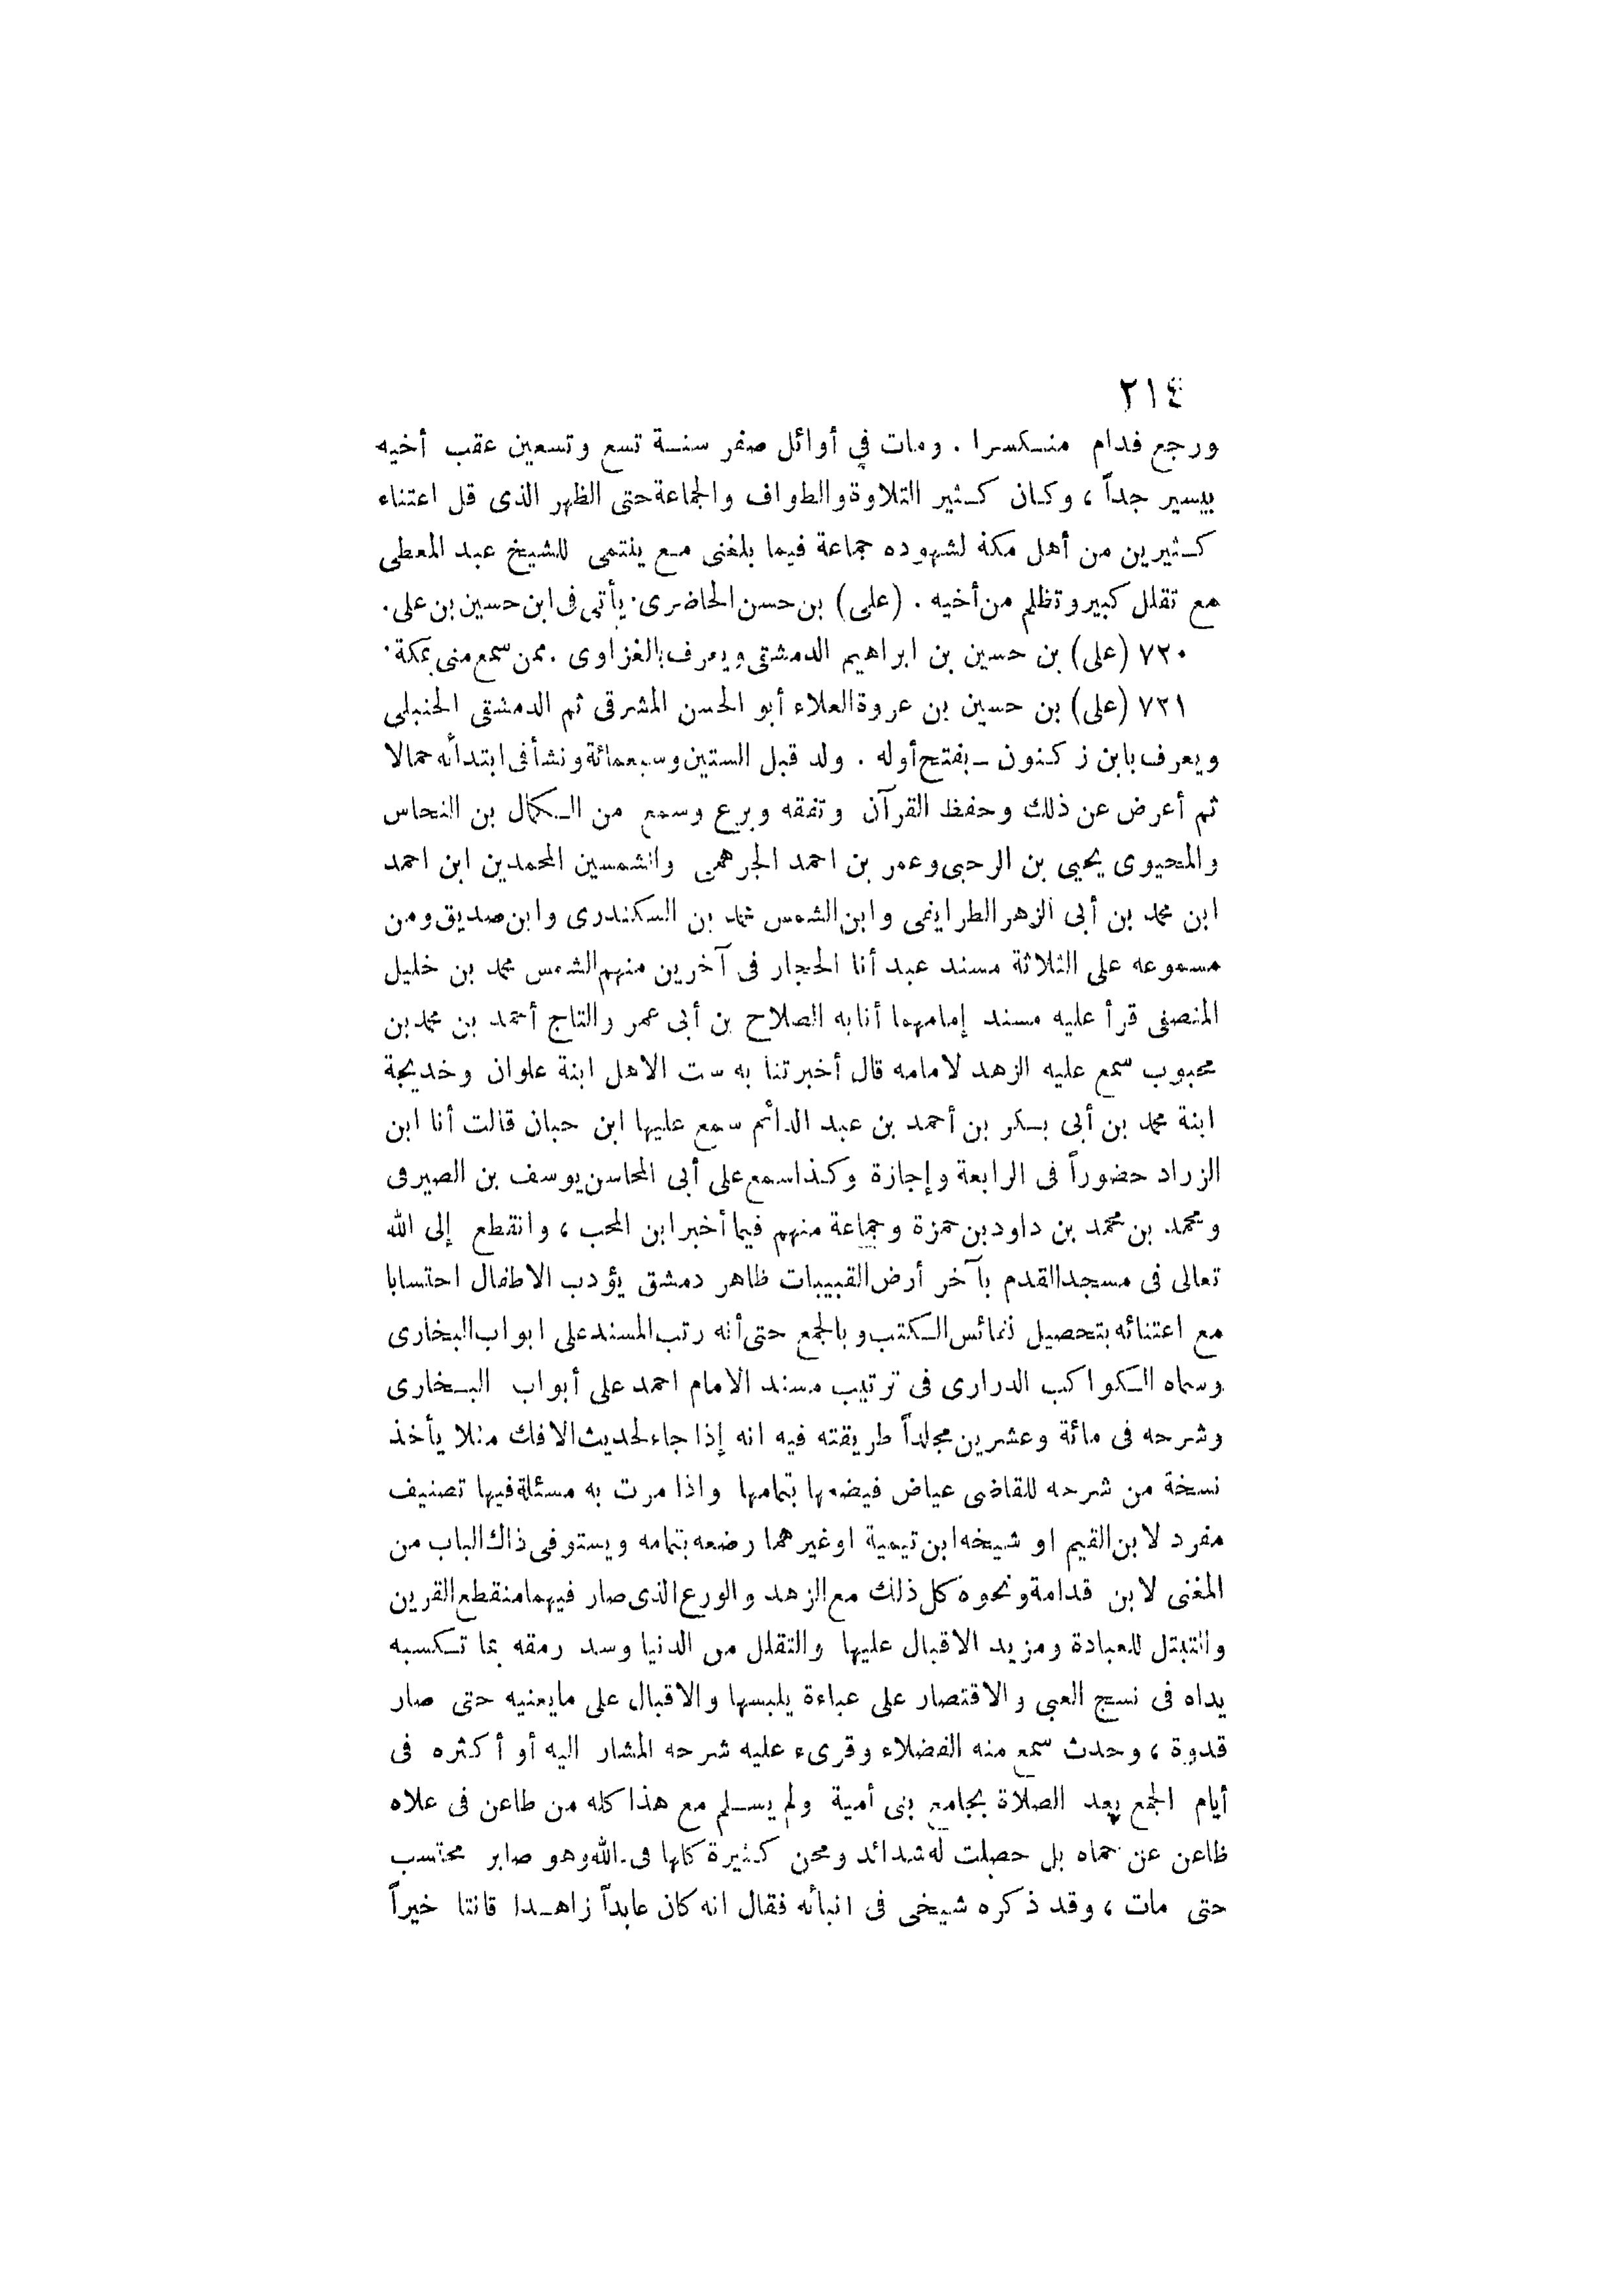 ٢١٤
ورجع فدام منكسرا . ومات في أوائل صفر سنة تسع وتسعين عقب أخيه
بيسير جداً ، وكان كثير التلاوة والطواف والجماعة حتى الظهر الذى قل اعتناء
كثيرين من أهل مكة لشهوده جماعة فيما بلغنى مع ينتمى للشيخ عبد المعطى
مع تقلل كبير وتظلم من أخيه . (على) بن حسن الحاضرى. يأتى فى ابن حسين بن على .
٧٢٠ (على) بن حسين بن ابراهيم الدمشقى ويعرف بالغزاوى . ممن سمع منى بمكة .
٧٢١ (على) بن حسين بن عروة العلاء أبو الحسن المشرقى ثم الدمشقى الحنبلى
ويعرف بابن زكنون - بفتح أوله . ولد قبل الستين وسبعمائة ونشأ فى ابتدائه حمالا
ثم أعرض عن ذلك وحفظ القرآن وتفقه وبرع وسمع من الكمال بن النحاس
والمحيوى يحيى بن الرحبى وعمر بن احمد الجرهمى والشمسين المحمدين ابن احمد
ابن محمد بن أبى الزهر الطرايفى وابن الشمس محمد بن السكندرى وابن صديق ومن
مسموعه على الثلاثة مسند عبد أنا الحجار فى آخرين منهم الشمس محمد بن خليل
المنصفى قرأ عليه مسند إمامهما أنابه الصلاح بن أبى عمر والتاج أحمد بن محمد بن
محبوب سمع عليه الزهد لامامه قال أخبرتنا به ست الاهل ابنة علوان وخديجة
ابنة محمد بن أبى بكر بن أحمد بن عبد الدائم سمع عليها ابن حبان قالت أنا ابن
الزراد حضوراً فى الرابعة وإجازة وكذا سمع على أبى المحاسن يوسف بن الصيرفى
ومحمد بن محمد بن داود بن حمزة وجماعة منهم فيما أخبر ابن المحب ، وانقطع إلى الله
تعالى فى مسجد القدم بآخر أرض القبيبات ظاهر دمشق يؤدب الاطفال احتسابا
مع اعتنائه بتحصيل نفائس الكتب وبالجمع حتى أنه رتب المسند على ابواب البخارى
وسماه الكواكب الدرارى فى ترتيب مسند الامام احمد على أبواب البخارى
وشرحه فى مائة وعشرين مجلداً طريقته فيه انه إذا جاء لحديث الافك مثلا يأخذ
نسخة من شرحه للقاضى عياض فيضعها بتمامها واذا مرت به مسئلة فيها تصنيف
مفرد لابن القيم او شيخه ابن تيمية او غيرهما وضعه بتمامه ويستوفى ذاك الباب من
المغنى لابن قدامة ونحوه كل ذلك مع الزهد والورع الذى صار فيهما منقطع القرين
والتبتل للعبادة ومزيد الاقبال عليها والتقلل من الدنيا وسد رمقه بما تكسبه
يداه فى نسج العبى والاقتصار على عباءة يلبسها والاقبال على مايعنيه حتى صار
قدوة ، وحدث سمع منه الفضلاء وقرىء عليه شرحه المشار اليه أو أكثره فى
أيام الجمع بعد الصلاة بجامع بنى أمية ولم يسلم مع هذا كله من طاعن فى علاه
ظاعن عن حماه بل حصلت له شدائد ومحن كثيرة كلها فى الله وهو صابر محتسب
حتى مات ، وقد ذكره شيخى فى انبائه فقال انه كان عابداً زاهدا قانتا خيراً